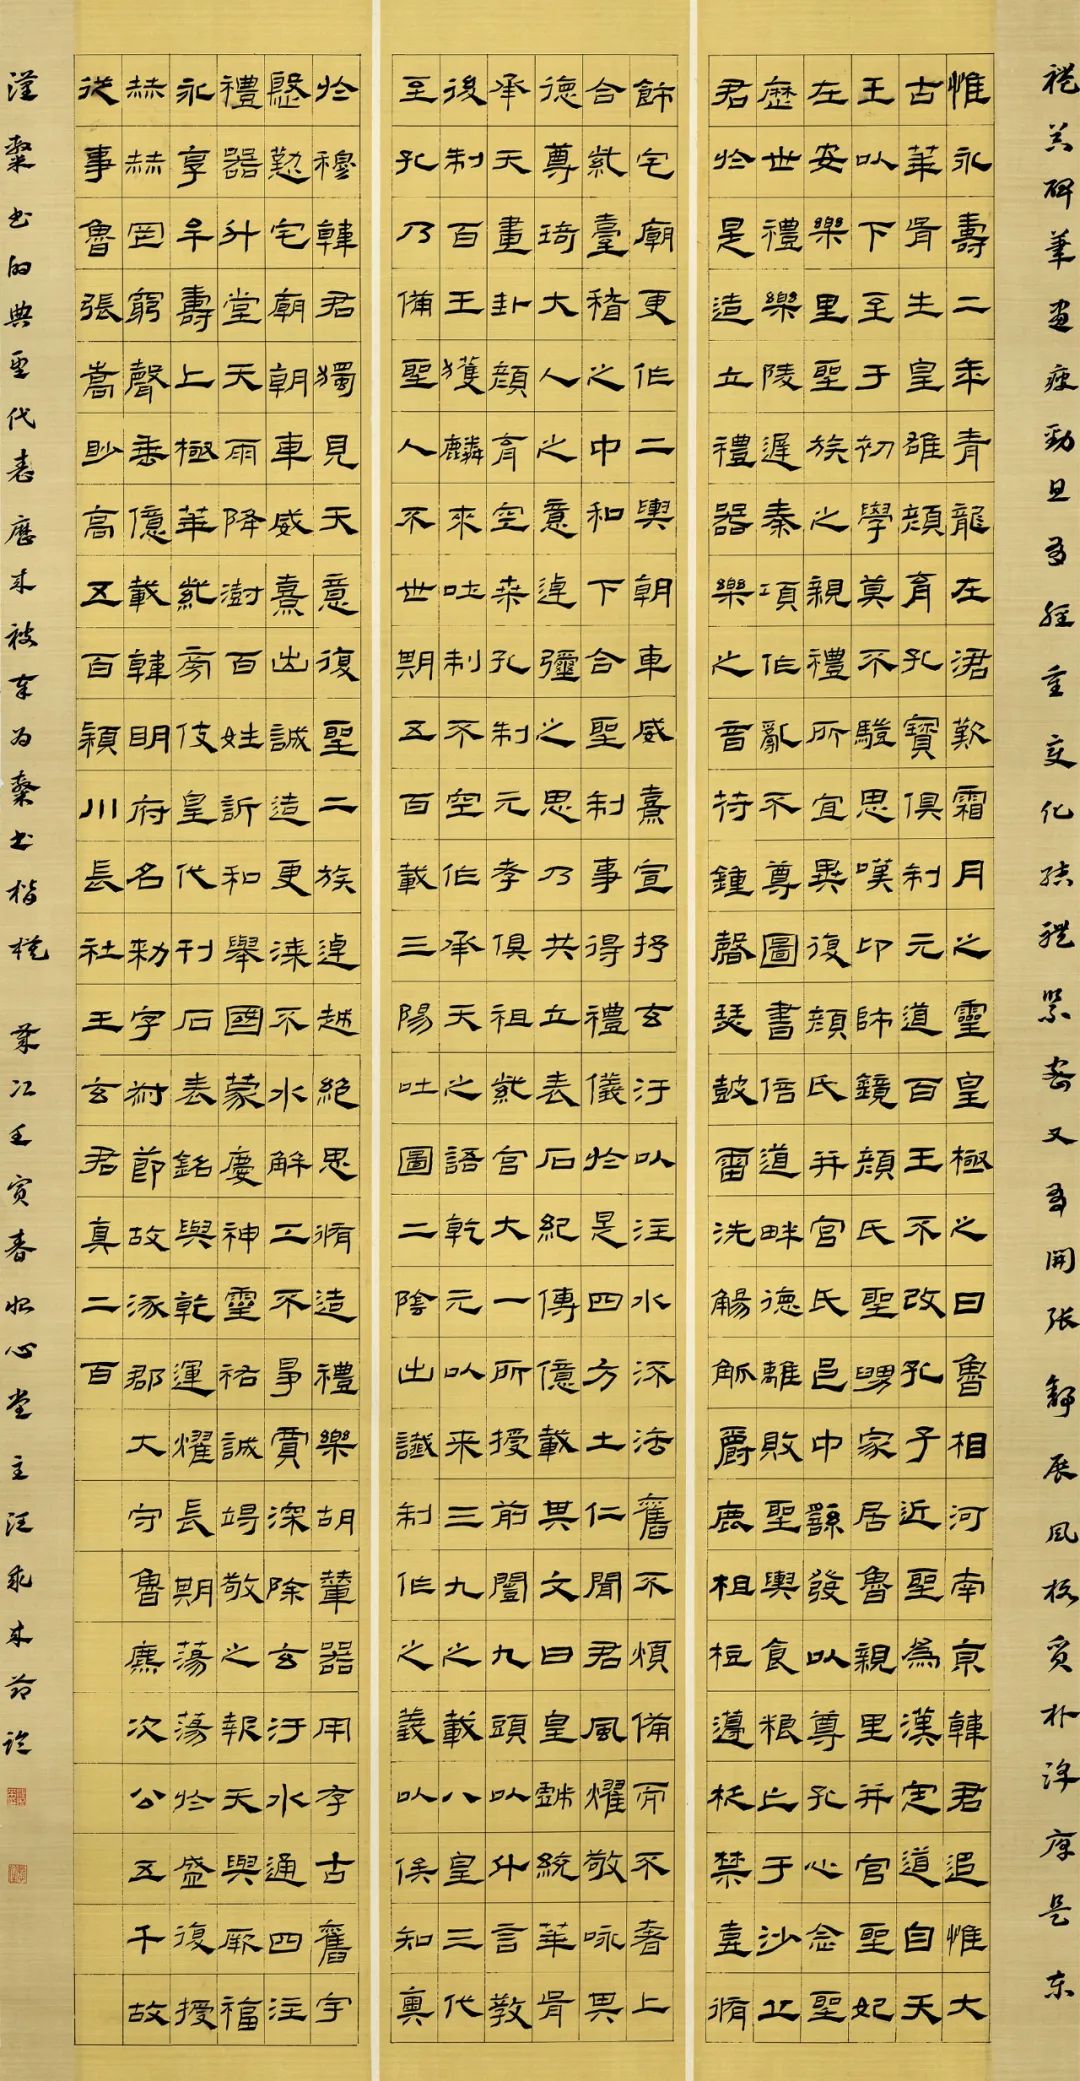 禮器碑筆畫瘦勁且多輕重变化結體緊密又多開張舒展風格質朴淳厚是东
惟永壽二年青龍在涒歎霜月之靈皇極之日魯相河南京韓君追惟大
古華胥生皇雄顏育孔寶俱制元道百王不改孔子近聖為漢定道自天
王以下至于初學莫不驗思嘆卬師鏡顏氏聖舅家居魯親里并官聖妃
在安樂里聖族之親禮所宜異復顏氏并官氏邑中繇發以尊孔心念聖
歷世禮樂陵遲秦項作亂不尊圖書倍道畔德離敗聖輿食粮亡于沙丘
君於是造立禮器樂之音符鍾磬瑟鼓雷洗觴觚爵鹿柤梪籩柉禁壺脩
飾宅廟更作二輿朝車威熹宣抒玄汙以注水流法舊不煩備而不奢上
合紫臺稽之中和下合聖制事得禮儀於是四方土仁聞君風燿敬咏其
德尊琦大人之意逴彌之思乃共立表石紀傳億載其文曰皇戲統華胥
承天畫卦顏育空桑孔制元孝俱祖紫宮大一所授前闓九頭以什言教
後制百王獲麟來吐制不空作承天之語乾元以來三九之載八皇三代
至孔乃備聖人不世期五百載三陽吐圖二陰出讖制作之義以俟知奧
於穆韓君獨見天意復聖二族逴越絕思脩造禮樂胡輦器用存古舊宇
慇懃宅廟朝車威熹出誠造更漆不水解工不爭賈深除玄汙水通四注
禮器升堂天雨降澍百姓訢和舉國蒙慶神靈祐誠竭敬之報天與厥福
永享牟壽上極華紫旁伎皇代刊石表銘與乾運燿長期蕩蕩於盛復授
赫赫罔窮聲垂億載韓明府名勑字叔節故涿郡大守魯麃次公五千故
從事魯張嵩眇高五百穎川長社王玄君真二百
漢隸书的典型代表歷来被奉为隸书楷模 歲次壬寅春 心堂主汪永来節臨